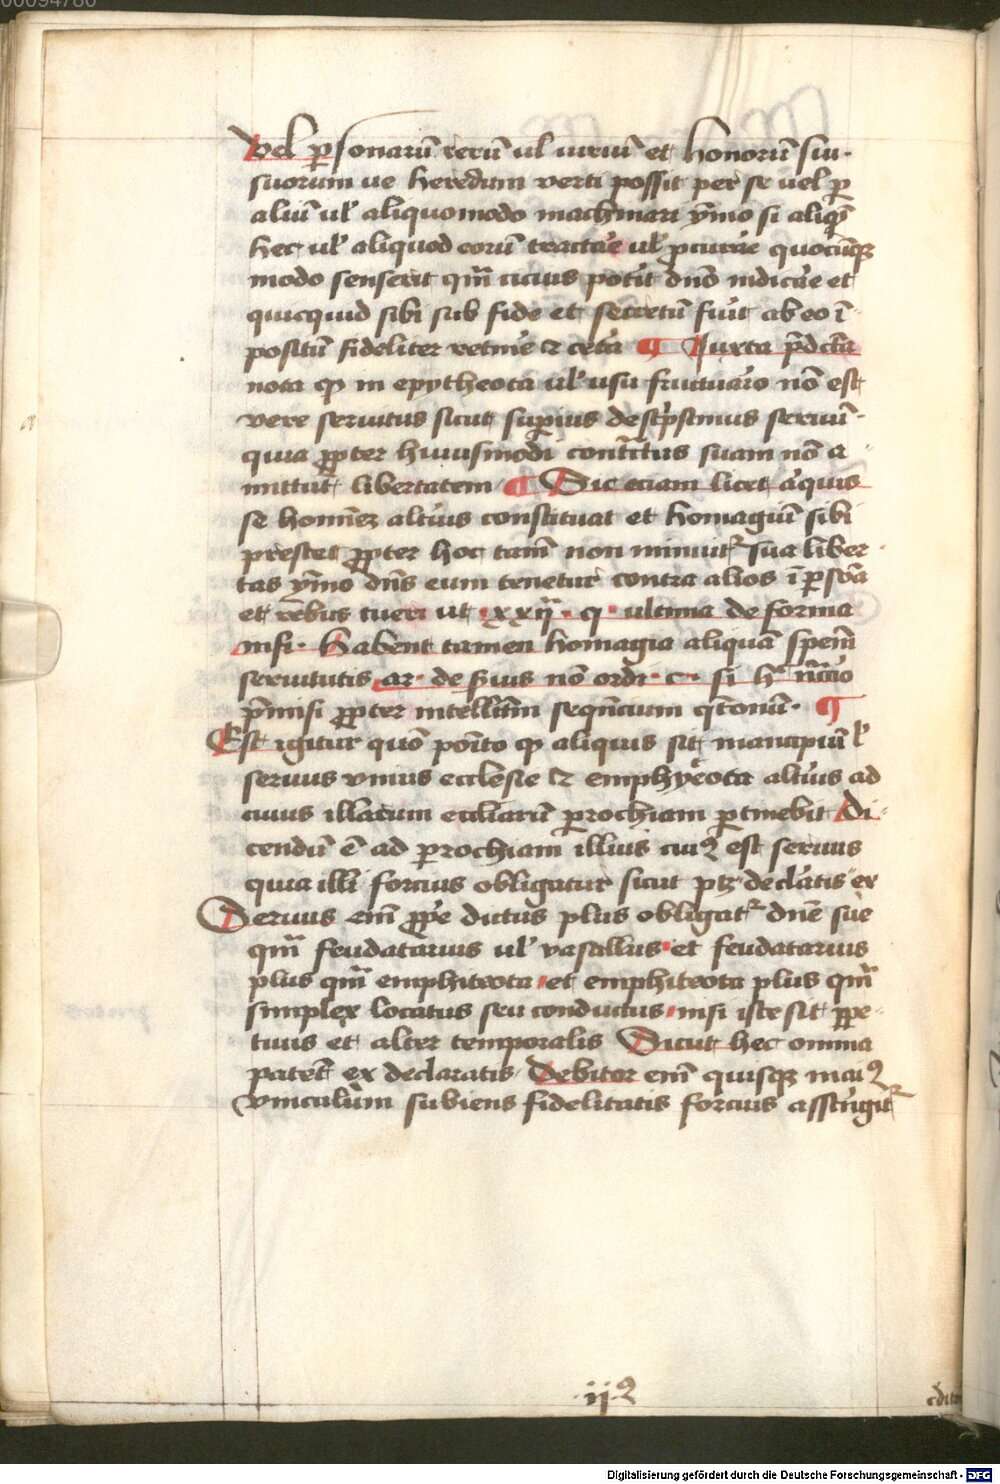 Vel p̱sonarū rerū ul̕ iuriū et honorum siu·
suorum ue heredum verti possit per se uel p̱
aliū ul̕ aliquomodo machinari ymo si aliqͥs
hec ul̕ aliquod eorū tractar̃e ul̕ p̱curar̃e quocūqꝫ
modo senserit qm̃ cicius potůit dnō indicar̃e et
quicquid sibi sub fide et secretū fuit ab eo ī
positū fideliter retiner̃e ⁊ cet̃a ¶ Iuxta p̃dcã
nota ꝙ in epytheota ul̕ usu fructuario nō est
vere seruitus sicut sup̱ius descͥpsimus seruū·
quia ꝓpter huiusmodi contr̃ctus suam nō a
mittunt̃ libertatem ¶ Sic eciam licet aͥquis
se hominẽ alterius constituat et homagiū sibi
prestet ꝓpter hoc tam̄ non minuit᷑ sua liber
tas ymo dn̄s eum tenetur contra alios ī p̱sōa
et rebus tueri ut ·xxij· q· ultima de forma
nisi· Habent tamen homagia aliquā spem̄
seruitutis ar· de s̕uis nō ordi· c· si h᷑ n̄ccio
p̄misi ꝓpter intellc̄m seqn̄cium qͦcionū· ¶
Est igitur quō ponito ꝙ aliquis sit mancipiū l̕
seruus vnius ecclesie ⁊ emphyteota alterius ad
cuius illarum eccliarū ꝑrochiam ꝑtinebit Di
cendū ē ad ꝑrochiam illius cuiꝰ est seruus
quia illi forcius obligatur sicut ptꝫ declaratis ex
Seruus em̄ ꝓpe dictus plus obligat᷑ dnē sue
qm̃ feudatarius ul̕ vasallus et feudatarius
plus qm̃ emphiteota et emphiteota plus qm̃
simplex locatus seu conductus nisi iste sit ꝑpe
tuus et alter temporalis Sicut hec omnia
patent̃ ex declaratis Debitor em̄ quisqꝫ maiꝰ
vinculum subiens fidelitatis forcius asstringit᷑
·ij·ꝰ
Digitalisierung gefördert durch die Deutsche Forschungsgemeinschaft - DFG